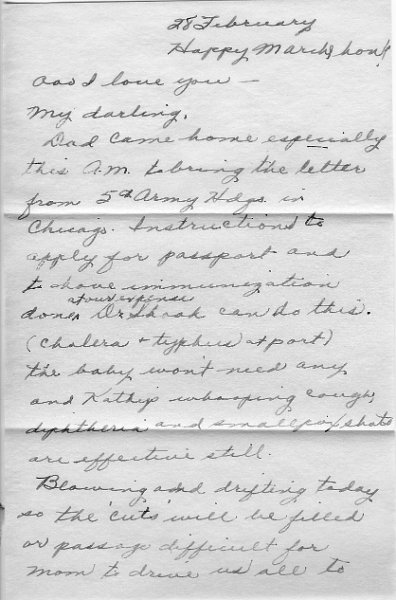 28 February
Happy March, hon!
Ooo I love you —
My darling,
Dad came home especially
this A.M. to bring the letter
from 5th Army Hdqs. in
Chicago. Instructions to
apply for passport and
to have immunization
at our expense
done, Dr. can do this.
(Cholera + typhus at port)
the baby won't need any
and Kathy's whooping cough,
diphtheria and smallpox shots
are effective still.
Blowing and drifting today
so the 'cuts' will be filled
or passage difficult for
Mom to drive us all to